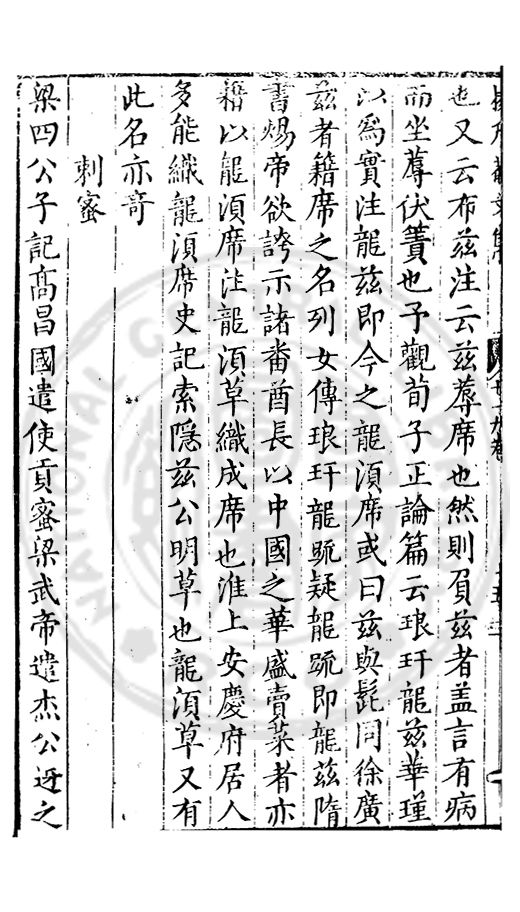 也又云布兹注云兹蓐席也然則負兹者盖言有病
而坐蓐伏簀也予觀荀子正論篇云琅玕龍兹華瑾
以爲實注龍兹即今之龍須席或曰兹與髭同徐廣
兹者籍席之名列女傳琅玕龍䟽疑龍䟽即龍兹隋
書煬帝欲誇示諸畨酋長以中國之華盛賣菜者亦
藉以龍湏席注龍湏草織成席也淮上安慶府居人
多能織龍湏席史記索隐兹公明草也龍湏草又有
此名亦竒
刺蜜
梁四公子記髙昌國遣使貢蜜梁武帝遣杰公迓之